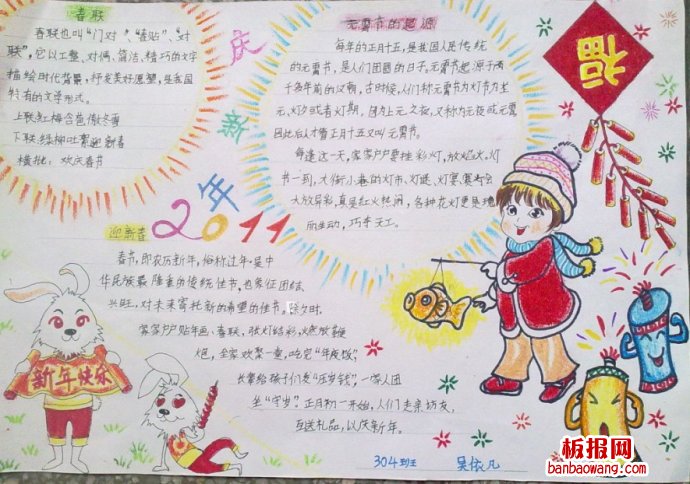 春联
春联也叫“门对”、“春贴”、“对
联”,它以工整、对偶、简洁、精巧的文字
描绘时代背景,抒发美好愿望,是我国
特有的文学形式。
上联:红梅含苞傲冬雪
下联:绿柳吐絮迎新春
横批:欢庆春节
庆新年2011
元宵节的起源
每年的正月十五,是我国人民传统
的元宵节,是人们团圆的日子。元宵节起源于两
千多年前的汉朝,古时候,人们称元宵节为灯节为上
元、灯夕或者灯期,因为上元之夜,又称为元夜或元宵
因此后人才管正月十五又叫元宵节。
每逢这一天,家家户户要挂彩灯,放焰火。灯
节一到,大街小巷的灯市、灯谜、灯宴、赛灯会
大放异彩,真是红火热闹,各种花灯更是
而生动,巧夺天工。
福
迎新春
春节,即农历新年,俗称过年,是中
华民族最隆重的传统佳节,也象征团结、
兴旺,对未来寄托新的希望的佳节。除夕时,
家家户户贴年画、春联,张灯结彩,燃放鞭
炮,全家欢聚一堂,吃完“年夜饭”
长辈给孩子们发“压岁钱”,一家人团
坐“守岁”。正月初一开始,人们走亲访友,
互送礼品,以庆新年。
新年快乐
304班 吴依凡
板报网
banbaowang.com